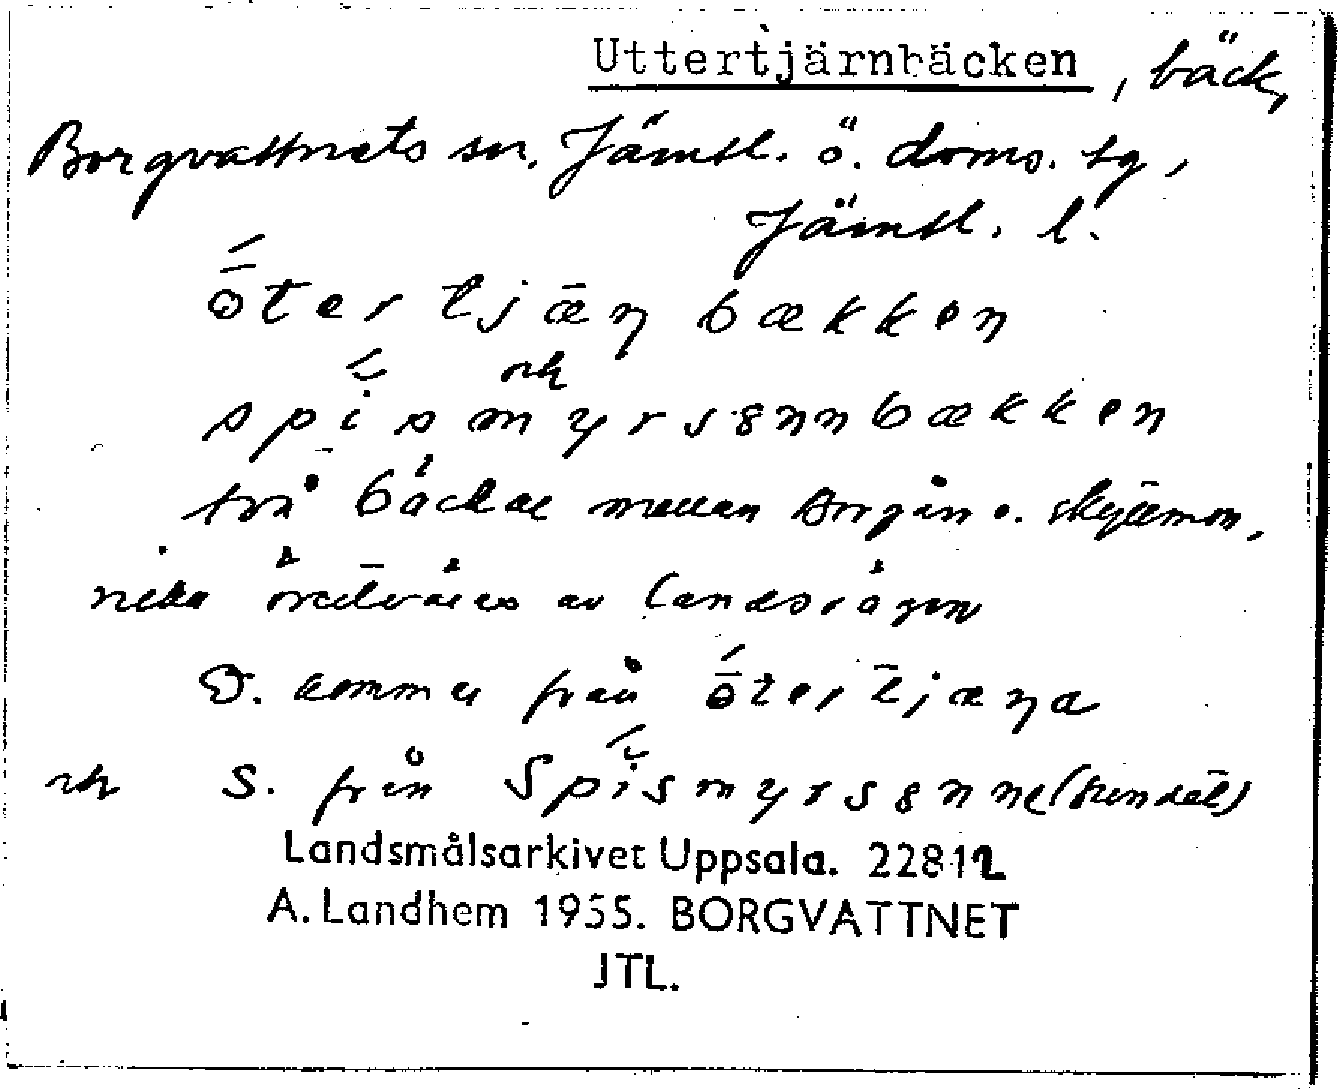 Uttertjärnbäcken, bäck,
Borgvattnets sn. Jämtl. ö. doms. tg,
Jämtl. l.
ōter tjæ̅ŋ bækken
och
spismyrsännbækken
två bäckar mellan Borgån o.
av landsvägen
D. kommer från ōtertjæŋa
och S. från Spismyrsänne
Landsmålsarkivet Uppsala. 22812
A. Landhem 1955. BORGVATTNET
JTL.